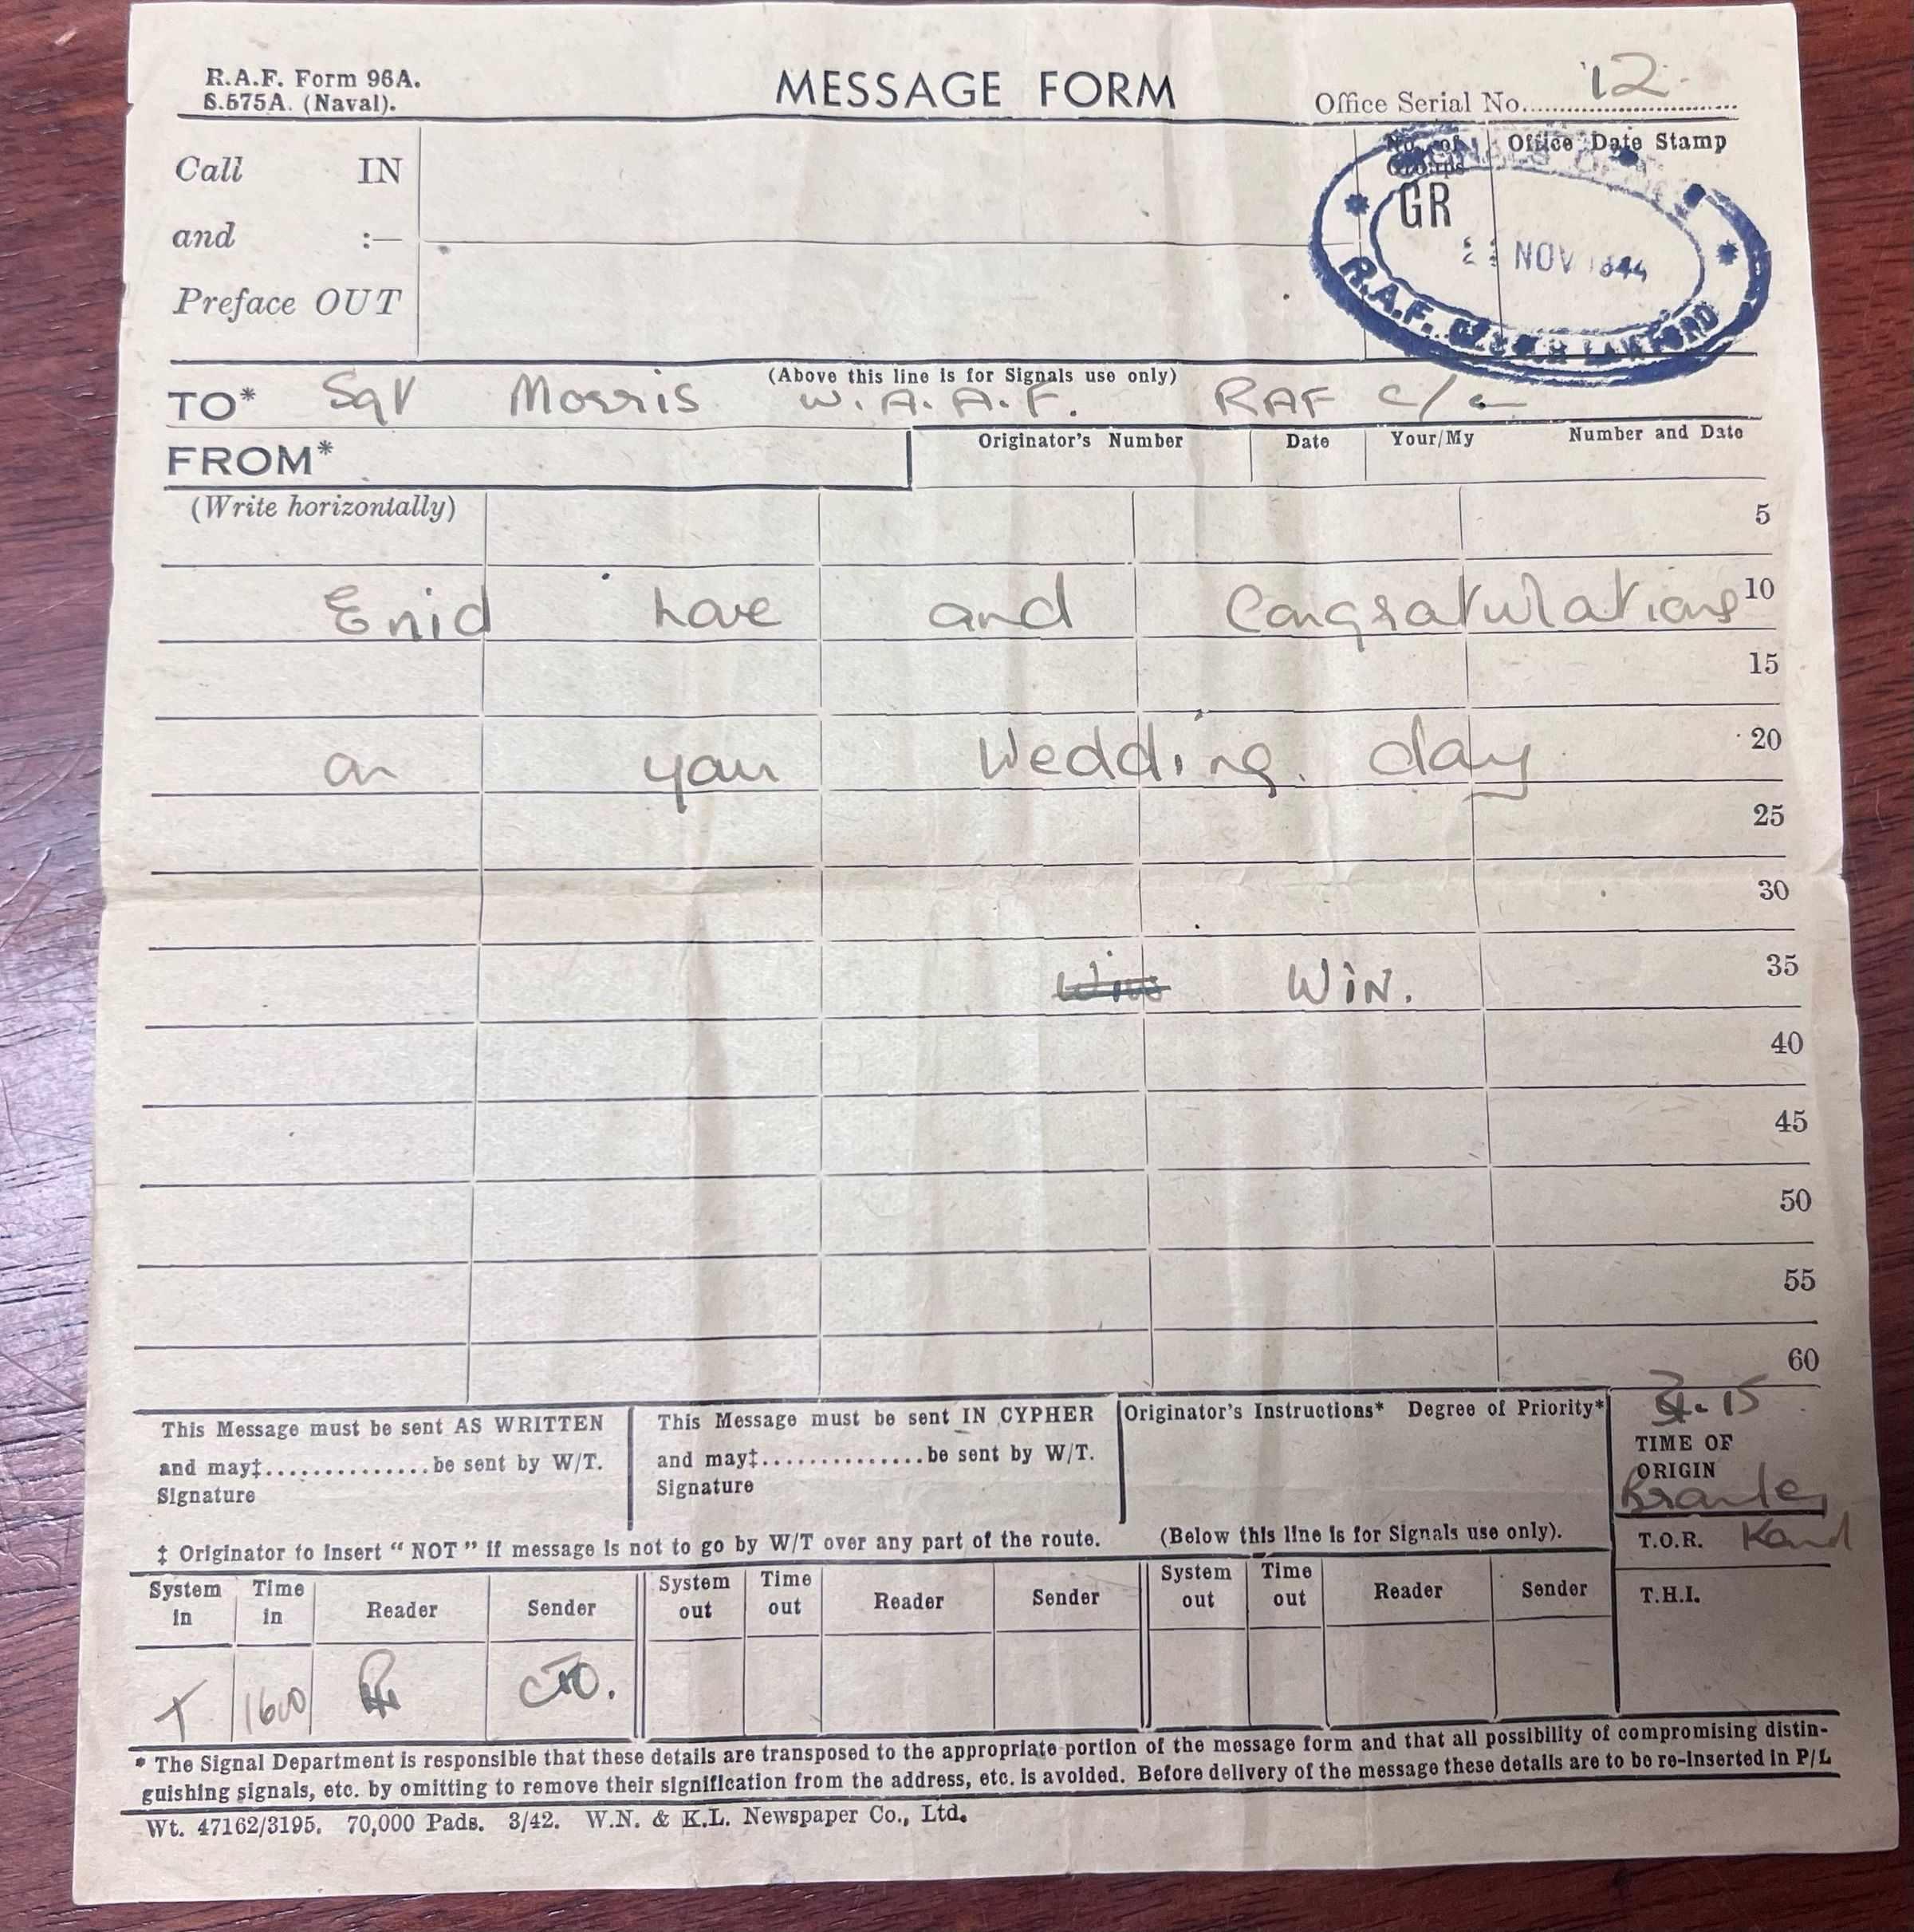 R.A.F. Form 96A.
S.575A. (Naval).
MESSAGE FORM
Office Serial No. 12
Call IN
and :—
Preface OUT
No. of Groups
GR
Office Date Stamp
NOV 1944
R.A.F. LAWFORD
(Above this line is for Signals use only)
TO* Sgt Morris W.A.A.F. RAF C/L
FROM*
Originator's Number Date Your/My Number and Date
(Write horizontally) 5
Enid Love and Congratulations 10
15
on your Wedding day 20
25
30
WIN. 35
40
45
50
55
60
This Message must be sent AS WRITTEN
and may‡...............be sent by W/T.
Signature
This Message must be sent IN CYPHER
and may‡...............be sent by W/T.
Signature
Originator's Instructions* Degree of Priority*
15
TIME OF
ORIGIN
T.O.R.
T.H.I.
‡ Originator to insert “ NOT ” if message is not to go by W/T over any part of the route. (Below this line is for Signals use only).
System in Time in Reader Sender System out Time out Reader Sender System out Time out Reader Sender
T 1600 CTO.
* The Signal Department is responsible that these details are transposed to the appropriate portion of the message form and that all possibility of compromising distin-
guishing signals, etc. by omitting to remove their signification from the address, etc. is avoided. Before delivery of the message these details are to be re-inserted in P/L
Wt. 47162/3195. 70,000 Pads. 3/42. W.N. & K.L. Newspaper Co., Ltd.